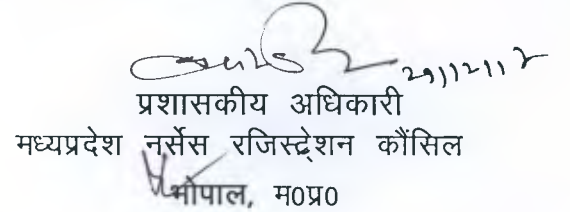 प्रशासकीय अधिकारी
मध्यप्रदेश नर्सेस रजिस्ट्रेशन कौंसिल
भोपाल, म0प्र0